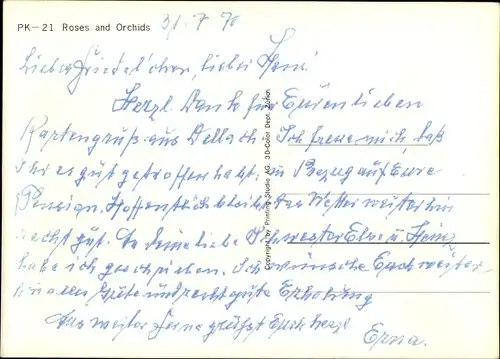 PK—21 Roses and Orchids
31.7.70
Liebes Friedel'chen, lieber Heini!
Herzl. Dank für Euren lieben
Kartengruß aus Dellach. Ich freue mich, daß
Ihr es gut getroffen habt, in Bezug auf Eure
Pension. Hoffentlich bleibt das Wetter weiterhin
recht gut. An deine liebe Schwester Else u. Heinz
habe ich geschrieben. Ich wünsche Euch weiter-
hin alles Gute und recht gute Erholung
Aus weiter Ferne grüßt Euch herzl.
Erna.
Copyright by Printing-Studio AG. 3D-Color Dept. Zürich